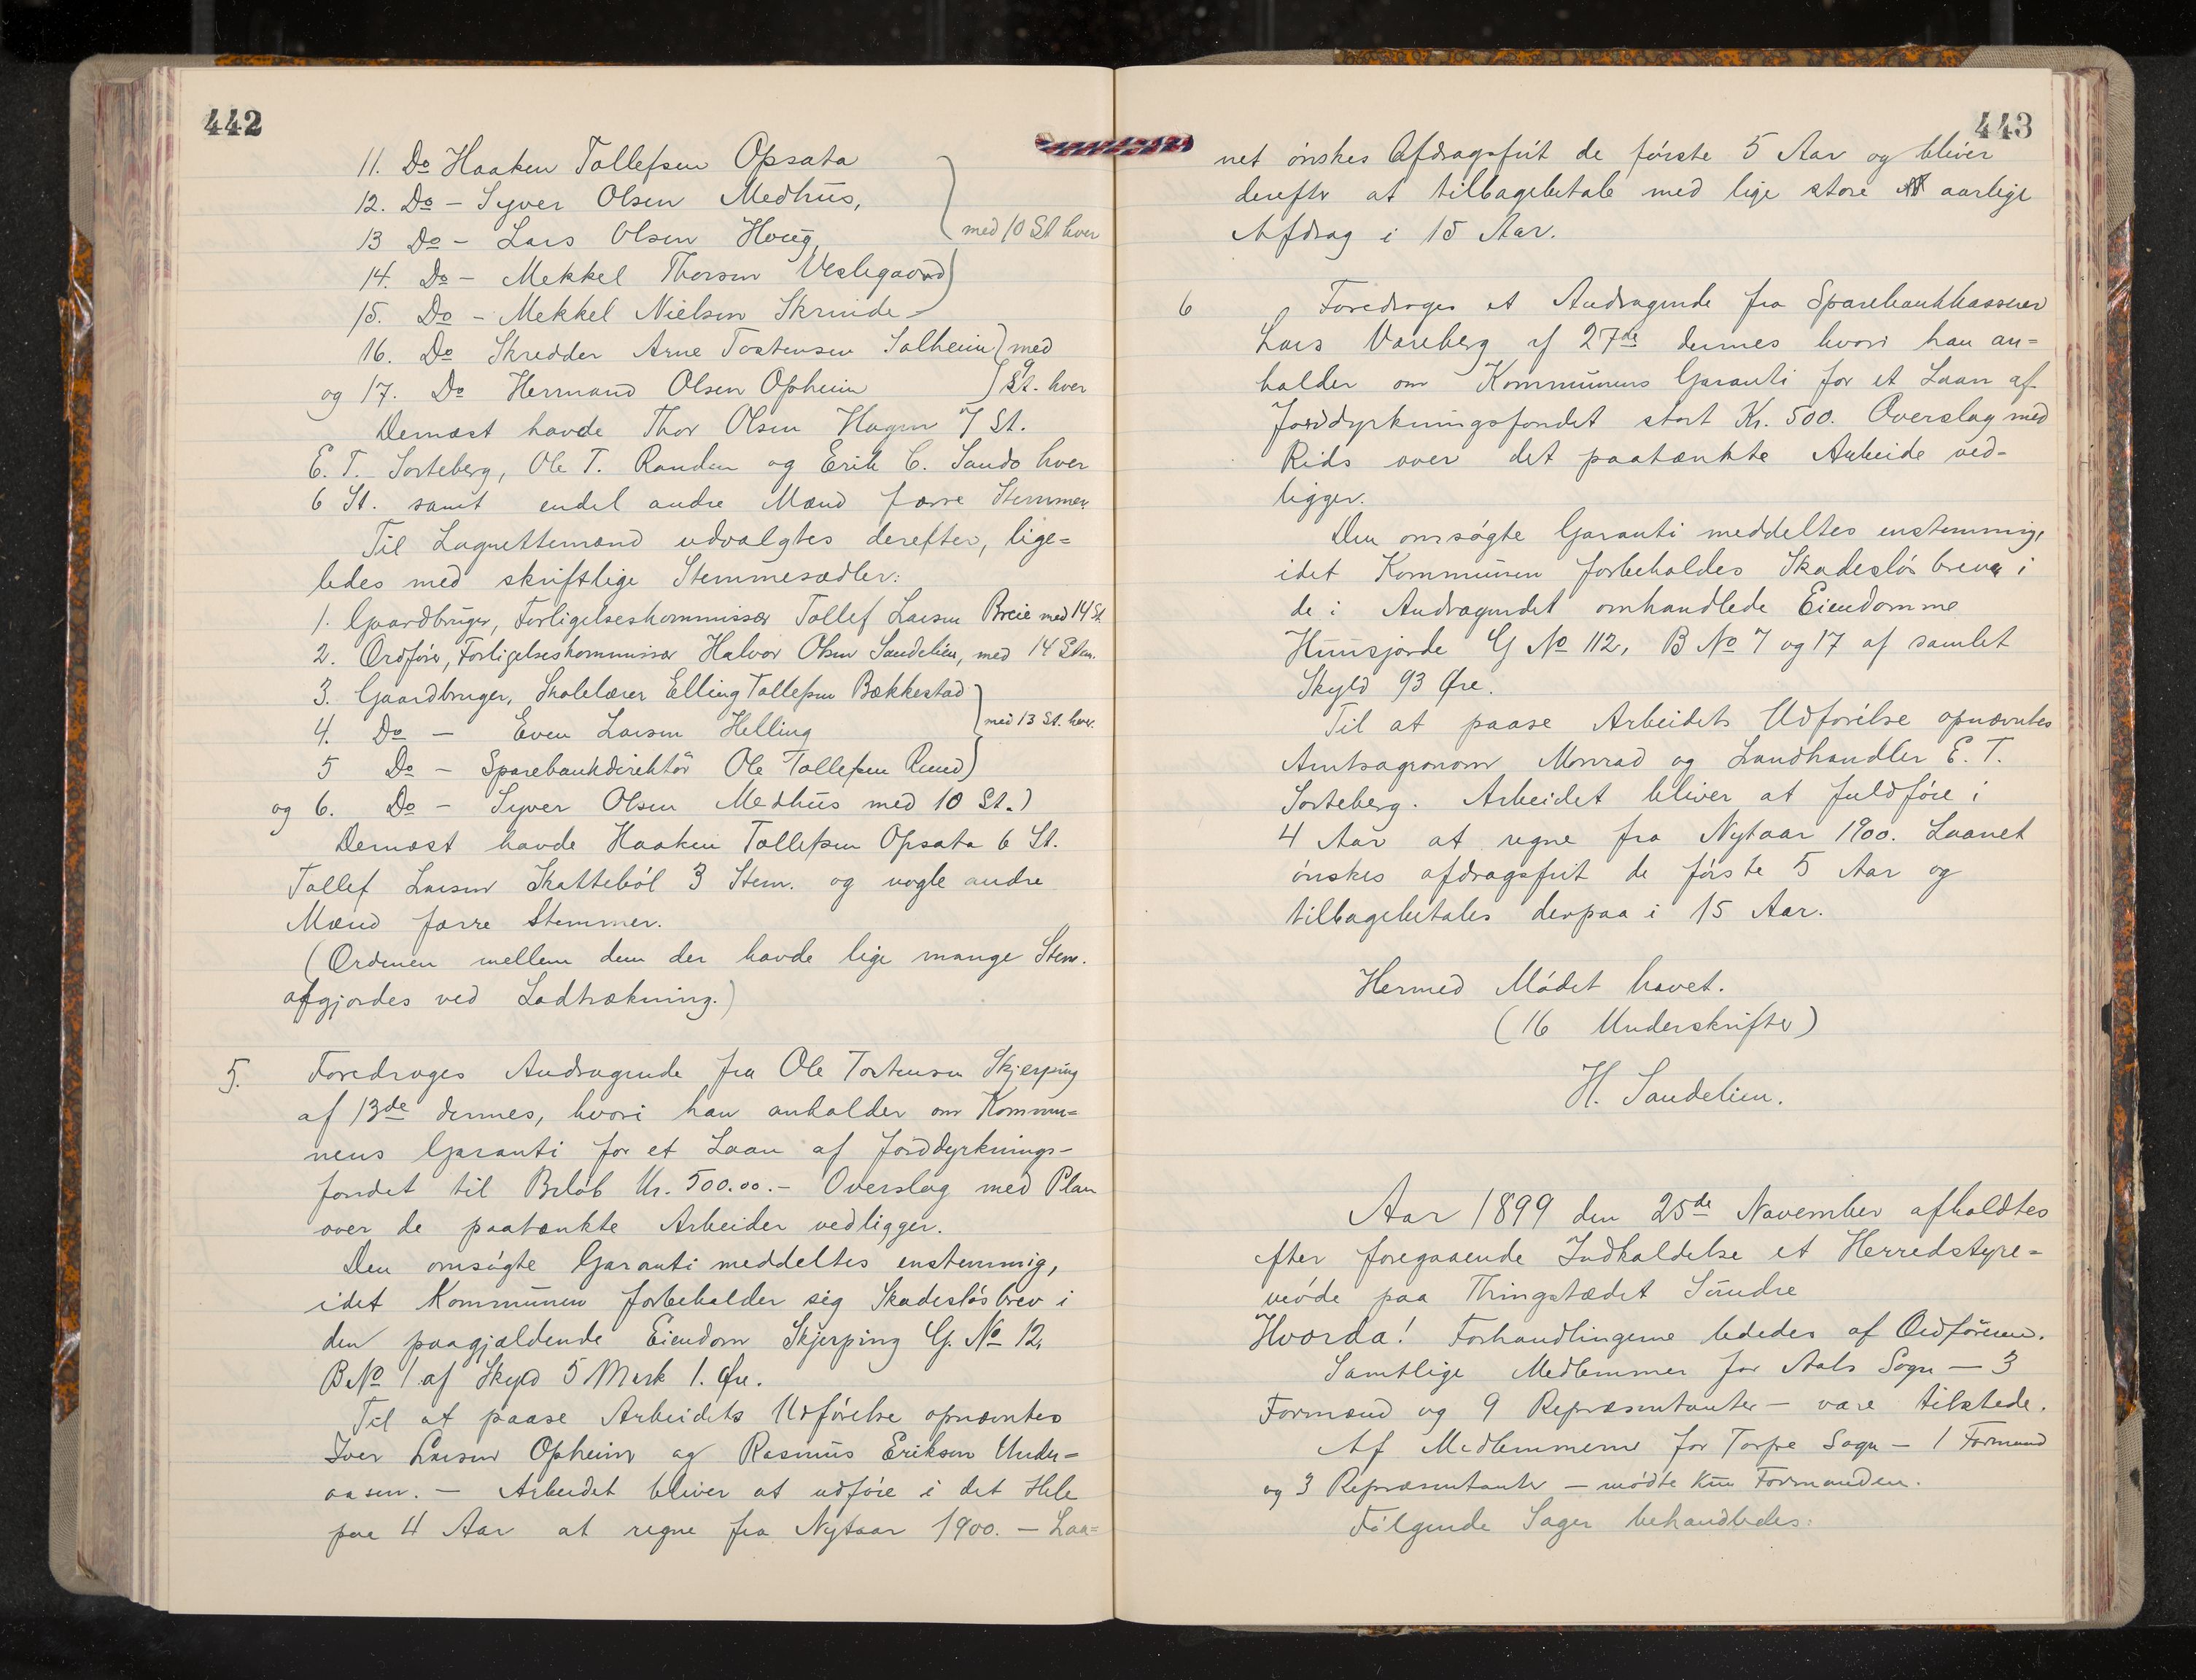 442
11. Do Haaken Tollefsen Opsata
12. Do - Syver Olsen Medhus,
13 Do - Lars Olsen Houg,
med 10 St hver
14. Do - Mekkel Thorsen Veslegaard
15. Do - Mekkel Nielsen Skrinde
16. Do Skredder Arne Tostensen Solheim med
og 17. Do Hermand Olsen Opheim 9 St. hver
Dernæst havde Thor Olsen Hagen 7 St.
E. T. Sorteberg, Ole T. Randen og Erik C. Sando hver
6 St. samt endel andre Mænd færre Stemmer.
Til Lagrettemænd udvalgtes derefter, lige=
ledes med skriftlige Stemmesedler:
1. Gaardbruger, Forligelseskommissær Tollef Larsen Breie med 14 St.
2. Ordfører, Forligelseskommissær Halvor Olsen Sandelien, med 14 Stem.
3. Gaardbruger, Skolelærer Elling Tollefsen Bækkestad
4. Do - Even Larsen Helling
med 13 St. hver.
5 Do - Sparebankdirektør Ole Tollefsen Ruud
og 6. Do - Syver Olsen Medhus med 10 St.)
Dernæst havde Haaken Tollefsen Opsata 6 St.
Tollef Larsen Skattebøl 3 Stem. og nogle andre
Mænd færre Stemmer.
(Ordenen mellem dem der havde lige mange Stem.
afgjordes ved Lodtrækning.)
5. Foredroges Andragende fra Ole Tostensen Skjerping
af 13de dennes, hvori han anholder om Kommu=
nens Garanti for et Laan af Jorddyrknings-
fondet til Beløb Kr. 500.00.- Overslag med Plan
over de paatænkte Arbeider vedligger.
Den omsøgte Garanti meddeltes enstemmig,
idet Kommunen forbeholder sig Skadesløsbrev i
den paagjældende Eiendom Skjerping G. No 12,
B No 1 af Skyld 5 Mark 1. Øre.
Til at paase Arbeidets Udførelse opnævntes
Iver Larsen Opheim og Rasmus Eriksen Under=
aasen. - Arbeidet bliver at udføre i det Hele
paa 4 Aar at regne fra Nytaar 1900. - Laa=
443
net ønskes Afdragsfrit de første 5 Aar og bliver
derefter at tilbagebetale med lige store aarlige
Afdrag i 15 Aar.
6 Foredroges et Andragende fra Sparebankkasserer
Lars Vareberg af 27de dennes hvori han an=
holder om Kommunens Garanti for et Laan af
Jorddyrkningsfondet stort Kr. 500. Overslag med
Rids over det paatænkte Arbeide ved-
ligger.
Den omsøgte Garanti meddeltes enstemmig,
idet Kommunen forbeholdes Skadesløsbreve i
de i Andragendet omhandlede Eiendomme
Huusjorde G No 112, B No 7 og 17 af samlet
Skyld 93 Øre.
Til at paase Arbeidets Udførelse opnævntes
Amtsagronom Monrad og Landhandler E. T.
Sorteberg. Arbeidet bliver at fuldføre i
4 Aar at regne fra Nytaar 1900. Laanet
ønskes afdragsfrit de første 5 Aar og
tilbagebetales derpaa i 15 Aar.
Hermed Mødet hævet.
(16 Underskrifter)
H. Sandelien.
Aar 1899 den 25de November afholdtes
efter foregaaende Indkaldelse et Herredstyre=
møde paa Thingstædet Søndre
Hvorda! Forhandlingerne lededes af Ordføreren.
Samtlige Medlemmer for Aals Sogn - 3
Formænd og 9 Repræsentanter - vare tilstede.
Af Medlemmerne for Torpe Sogn - 1 Formand
og 3 Repræsentanter - mødte kun Formanden.
Følgende Sager behandledes: